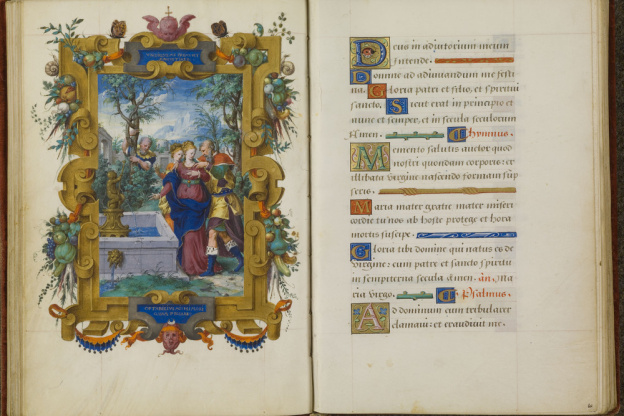 Deus in adiutorium meum
intende.
Domine ad adiuvandum me festi
na. Gloria patri et filio, et spiritui
sancto. Sicut erat in principio et
nunc et semper, et in secula seculorum
Amen. Hymnus.
Memento salutis auctor quod
nostri quondam corporis: ex
illibata virgine nascendo formam sūp
seris.
Maria mater gratie mater miseri
cordie tu nos ab hoste protege et hora
mortis suscipe.
Gloria tibi domine qui natus es de
virgine: cum patre et sancto spiritu
in sempiterna secula Amen. añ.
ria virgo. Psalmus.
Ad dominum cum tribularer
clamavi: et exaudivit me.